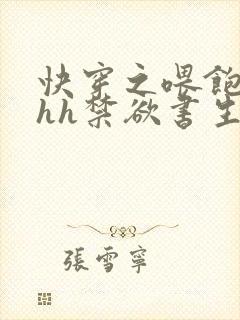 快穿之喂飽
hh禁欲書生
張雪寧